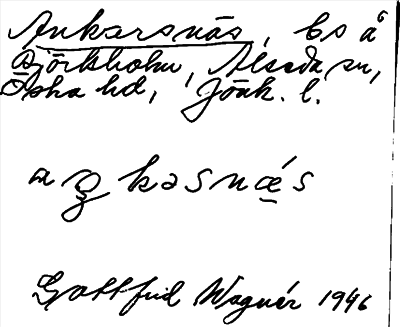 Ankarsnäs, bs å
Björkholm, Alseda sn,
Östra hd, Jönk. l.
kasnǽ̠s
Gottfrid Wagnér 1946